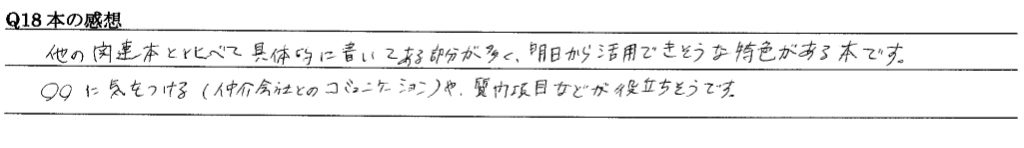 Q18 本の感想
他の関連本と比べて具体的に書いてある部分が多く、明日から活用できそうな特色がある本です。
○○に気をつける(仲介会社とのコミュニケーション)や、質内項目などが役立ちそうです。